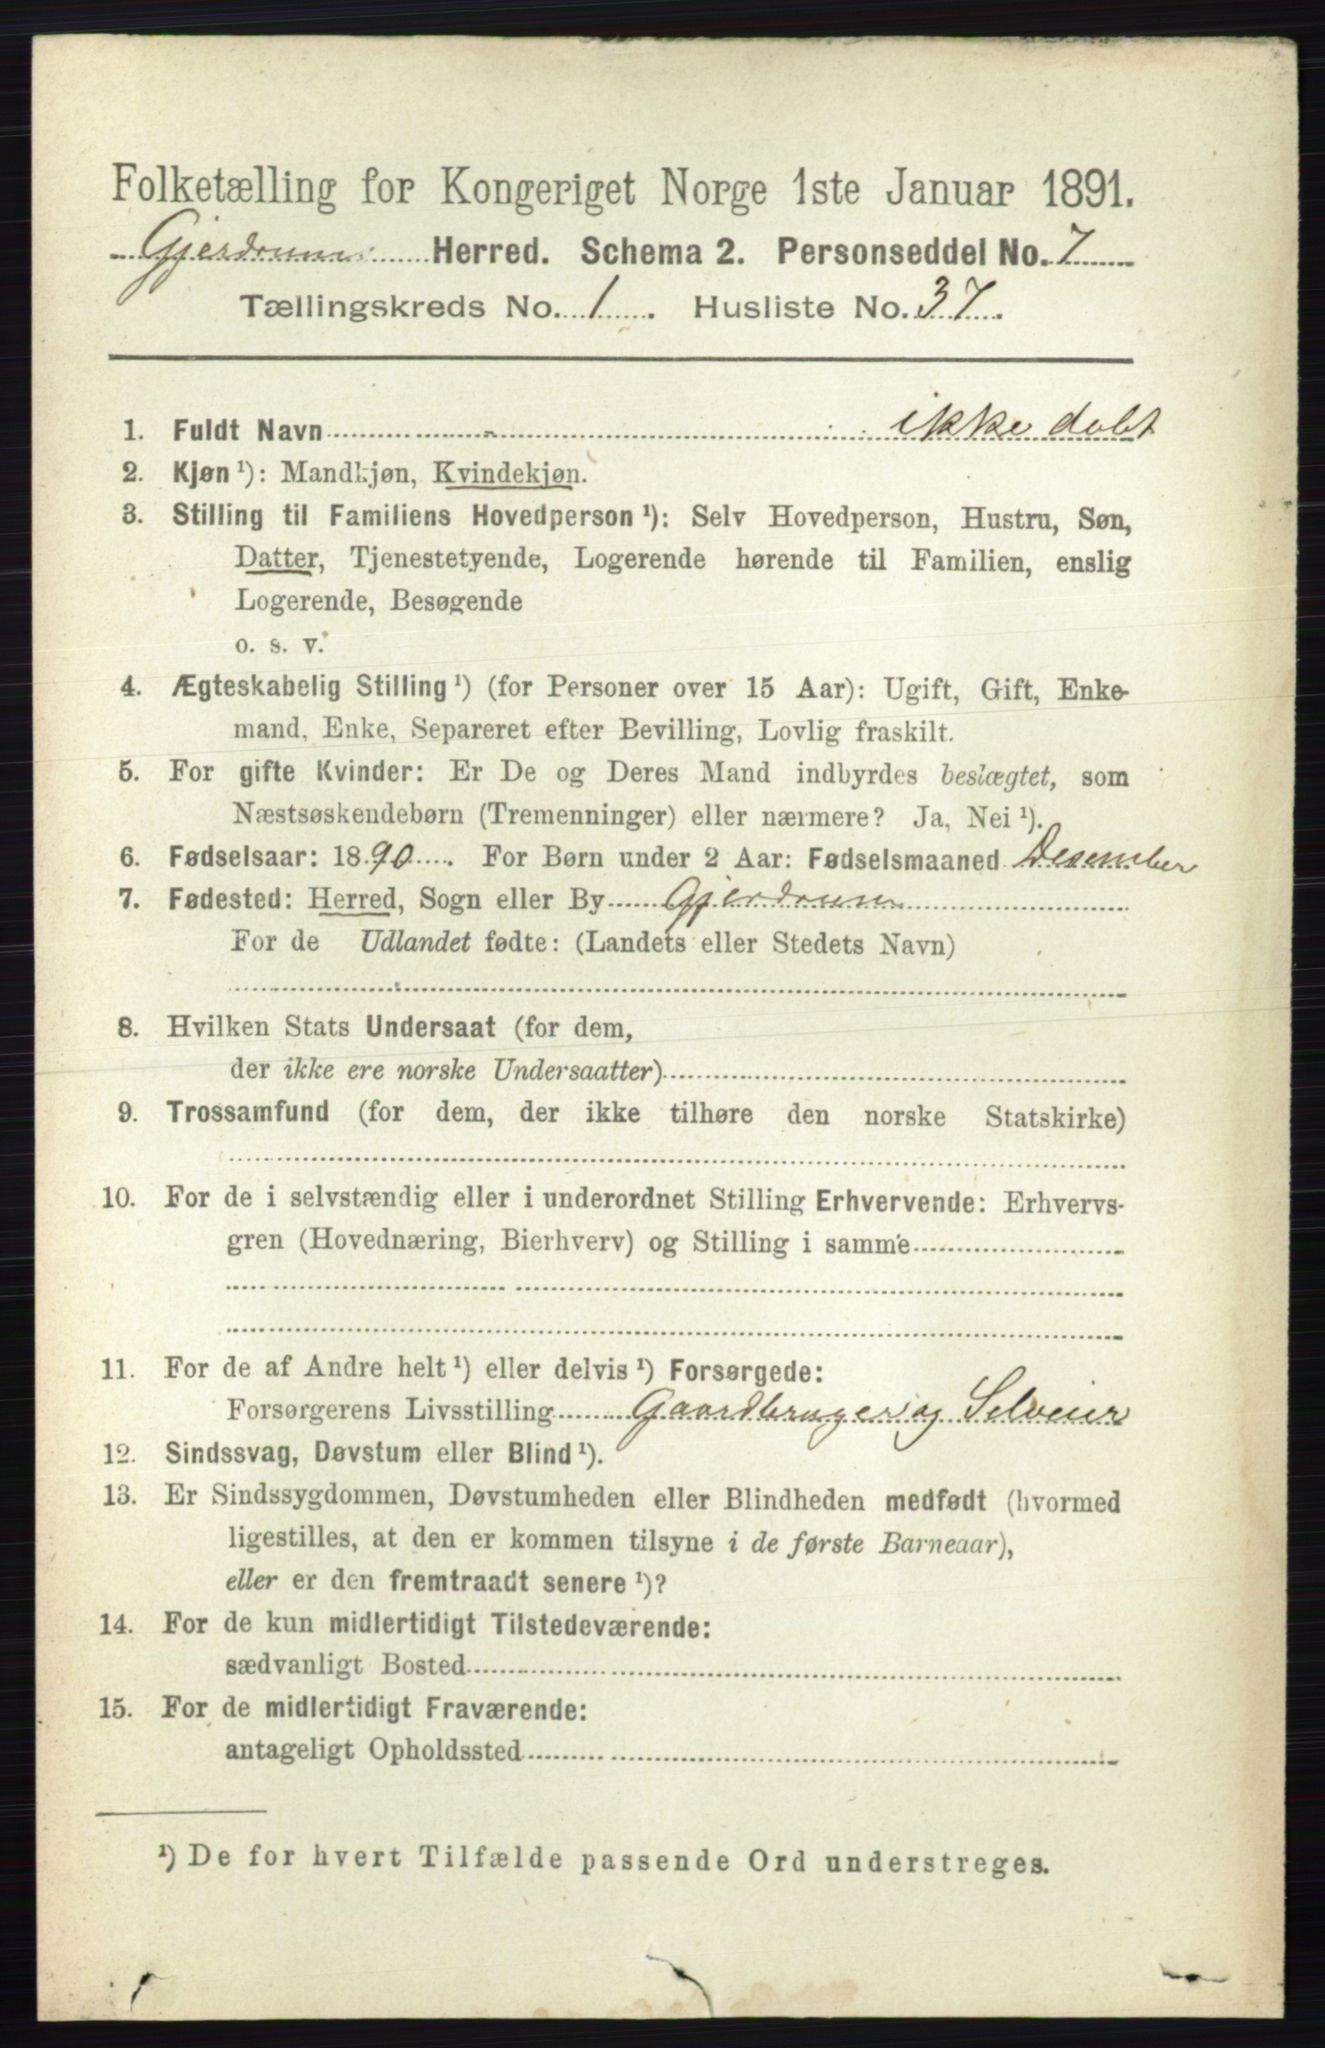 Folketælling for Kongeriget Norge 1ste Januar 1891.
Gjerdrum Herred. Schema 2. Personseddel No. 7
Tællingskreds No. 1. Husliste No. 37.
1. Fuldt Navn ikke døbt
2. Kjøn ¹): Mandkjøn, Kvindekjøn.
3. Stilling til Familiens Hovedperson ¹): Selv Hovedperson, Hustru, Søn,
Datter, Tjenestetyende, Logerende hørende til Familien, enslig
Logerende, Besøgende
o. s. v.
4. Ægteskabelig Stilling ¹) (for Personer over 15 Aar): Ugift, Gift, Enke-
mand, Enke, Separeret efter Bevilling, Lovlig fraskilt.
5. For gifte Kvinder: Er De og Deres Mand indbyrdes beslægtet, som
Næstsøskendebørn (Tremenninger) eller nærmere? Ja, Nei ¹).
6. Fødselsaar: 1890. For Børn under 2 Aar: Fødselsmaaned Desember
7. Fødested: Herred, Sogn eller By Gjerdrum
For de Udlandet fødte: (Landets eller Stedets Navn)
8. Hvilken Stats Undersaat (for dem,
der ikke ere norske Undersaatter)
9. Trossamfund (for dem, der ikke tilhøre den norske Statskirke)
10. For de i selvstændig eller i underordnet Stilling Erhvervende: Erhvervs-
gren (Hovednæring, Bierhverv) og Stilling i samme
11. For de af Andre helt ¹) eller delvis ¹) Forsørgede:
Forsørgerens Livsstilling Gaardbruger og Selveier
12. Sindssvag, Døvstum eller Blind ¹).
13. Er Sindssygdommen, Døvstumheden eller Blindheden medfødt (hvormed
ligestilles, at den er kommen tilsyne i de første Barneaar),
eller er den fremtraadt senere ¹)?
14. For de kun midlertidigt Tilstedeværende:
sædvanligt Bosted
15. For de midlertidigt Fraværende:
antageligt Opholdssted
¹) De for hvert Tilfælde passende Ord understreges.